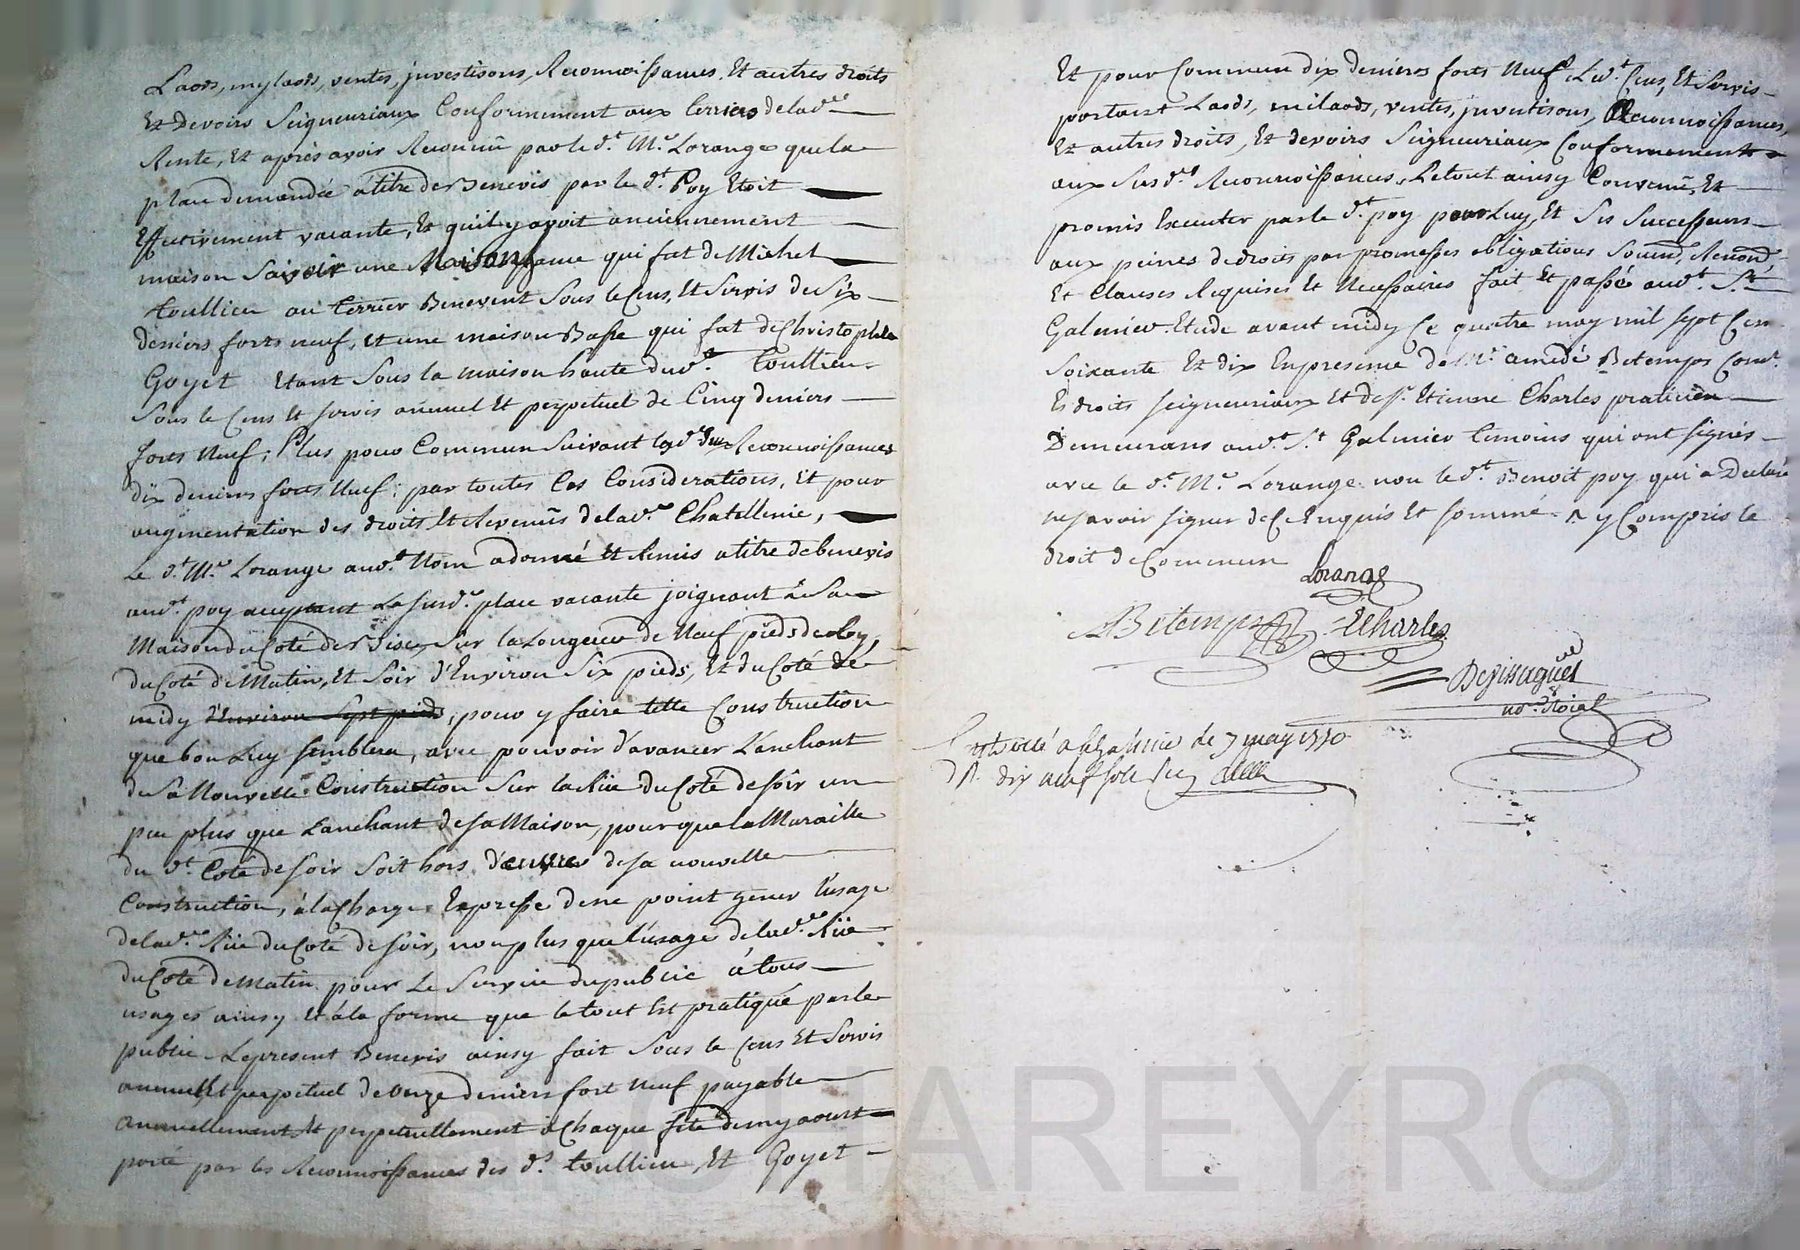 Laods, mylaods, ventes, jnvestisons, Reconnoissances, Et autres droits
Et Devoirs Seigneuriaux Conformement aux terriers de lad.ᵉ
Rente, Et aprés avoir Reconnû par le d.ᵗ M.ᵉ Lorange que la
place demandée á titre de Benevis par le d.ᵗ Poy Etoit
Effectivement vacante, Et qu'il y avoit anciennement
maison Savoir une Maison qui fut de Michel
toullieu au terrier Benevent Sous le Cens, Et Servis de Six
deniers forts neuf, Et une maison Basse qui fut de Christophle
Goyet Etant Sous la maison haute dud.ᵗ toullieu
Sous le Cens Et servis annuel Et perpetuel de Cinq deniers
forts Neuf; Plus pour Commun Suivant lesd. deux Reconnoissances
dix deniers forts Neuf; par toutes Ces Considerations, Et pour
augmentation des droits Et Revenûs de lad.ᵉ Chatellenie,
Le d.ᵗ M.ᵉ Lorange aud.ᵗ Nom a donné Et Remis a titre de benevis
aud.ᵗ poy acceptant La susd.ᵉ place vacante joignant á Sa
Maison du Coté de Bise, Sur la Longueur de Neuf pieds de Roy,
du Coté de Matin, Et Soir d'Environ Six pieds, Et du Coté de
midy d'Environ Sept pieds, pour y faire telle Construction
que bon Luy semblera, avec pouvoir d'avancer L'anchant
de Sa Nouvelle Construction Sur la Rüe du Coté de Soir un
peu plus que L'anchant de sa Maison, pour que la Muraille
du d.ᵗ Coté de soir Soit hors d'œuvre de sa nouvelle
Construction, á la Charge Expresse de ne point gener l'usage
de lad.ᵉ Rüe du Coté de Soir, non plus que l'usage de lad.ᵉ Rüe
du Coté de Matin pour Le Service du public á tous
usages ainsy Et á la forme que le tout Est pratiqué par le
public Le present Benevis ainsy fait Sous le Cens Et Servis
annuel Et perpetuel de Onze deniers fort Neuf payable
Annuellement Et perpetuellement á Chaque fête de my aoust
porté par les Reconnoissances des d.ˢ toullieu, Et Goyet
Et pour Commun dix deniers forts Neuf, Led.ᵗ Cens, Et Servis
portant Laods, milaods, ventes, jnvestisons, Reconnoissances,
Et autres droits, Et devoirs Seigneuriaux Conformement
aux Susd.ᵉˢ Reconnoissances, Le tout ainsy Convenû, Et
promis Executer par le d.ᵗ poy pour Luy, Et Ses Successeurs
aux peines de droits par promesses obligations Soum., Renond.
Et Clauses Requises Et Necessaires fait Et passé aud.ᵗ S.ᵗ
Galmier Etude avant midy Ce quatre may mil sept Cen
Soixante Et dix En presence de M.ᵉ amedé Betemps Com.ʳᵉ
Es droits seigneuriaux Et de s.ʳ Etienne Charles praticien
Demeurans aud.ᵗ S.ᵗ Galmier temoins qui ont signés
avec le d.ᵗ M.ᵉ Lorange non le d.ᵗ Benoit poy qui a Declaré
ne savoir signer de C. Enquis Et sommé. y Compris le
droit de Commun
Lorange
Betemps ECharles
Depinaguet
no.ʳᵉ Roial
Controllé a St Galmier le 7 may 1770
R. dix neuf sols six d.
CHAREYRON